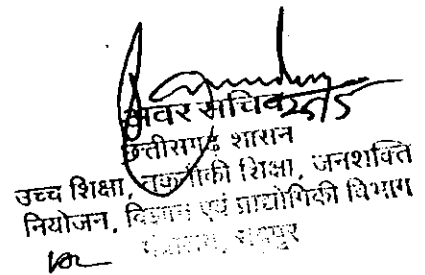 अवर सचिव 25/5
छत्तीसगढ़ शासन
उच्च शिक्षा, तकनीकी शिक्षा, जनशक्ति
नियोजन, विज्ञान एवं प्रौद्योगिकी विभाग
मंत्रालय, रायपुर